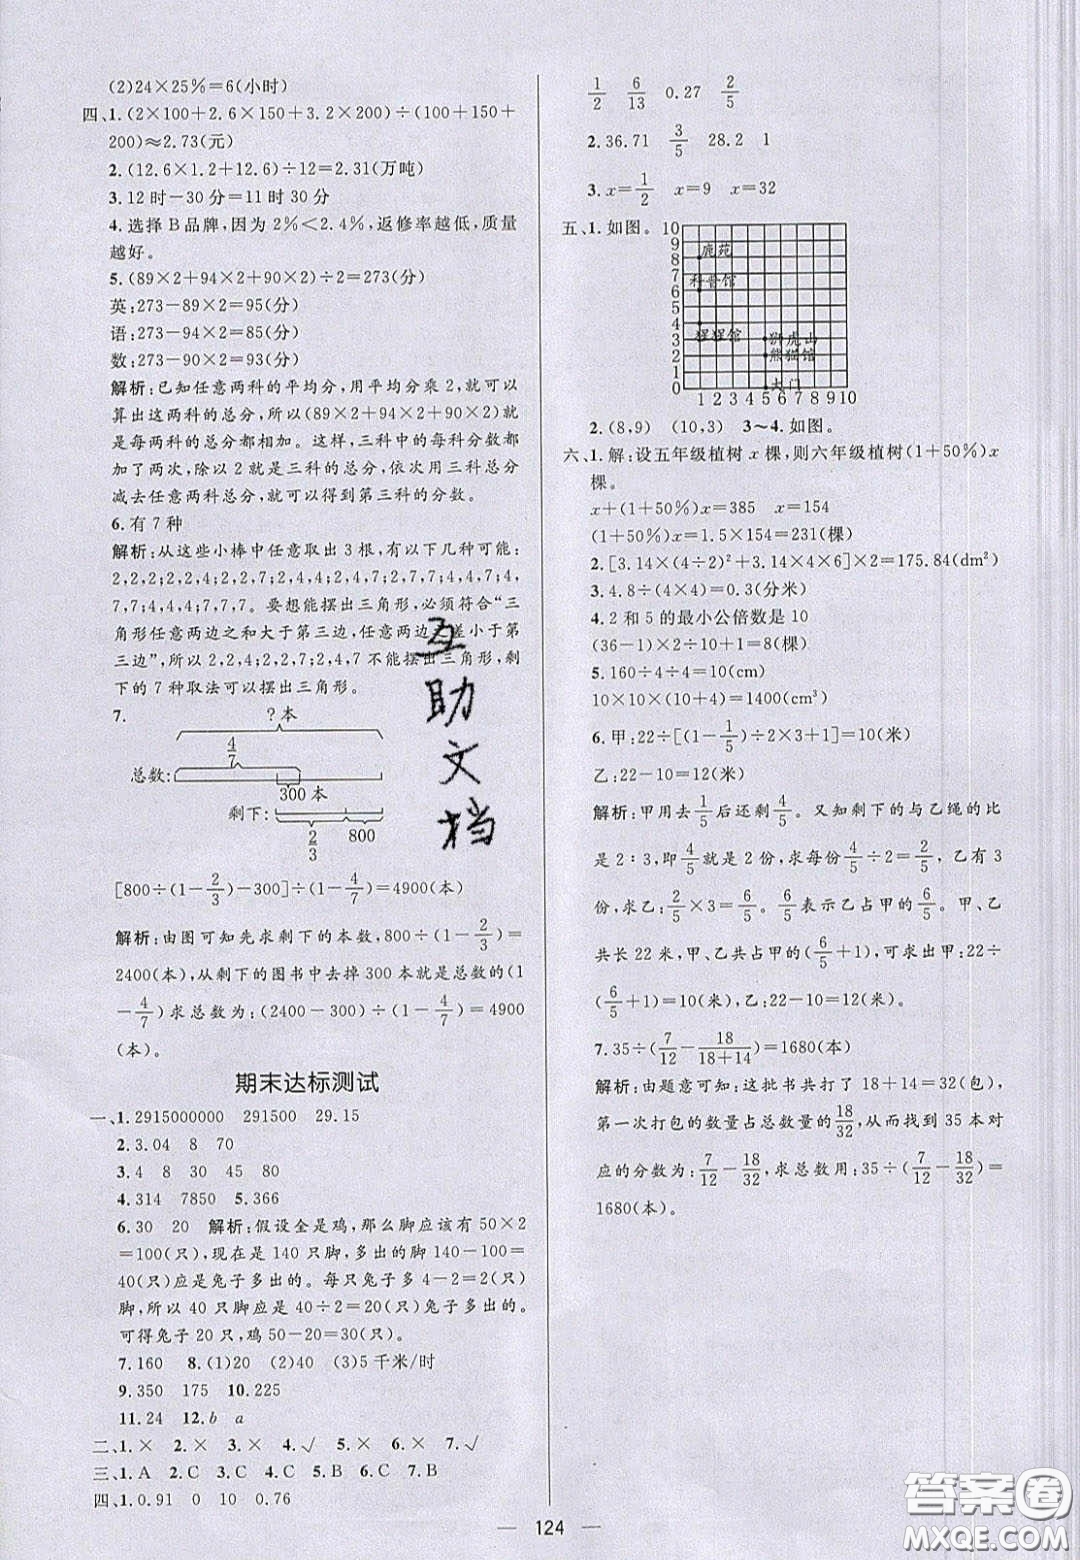 (2)24×25%=6(小时)
四、1.(2×100+2.6×150+3.2×200)÷(100+150+
200)≈2.73(元)
2.(12.6×1.2+12.6)÷12=2.31(万吨)
3.12时-30分=11时30分
4.选择B品牌,因为2%<2.4%,返修率越低,质量
越好。
5.(89×2+94×2+90×2)÷2=273(分)
英:273-89×2=95(分)
语:273-94×2=85(分)
数:273-90×2=93(分)
解析:已知任意两科的平均分,用平均分乘2,就可以
算出这两科的总分,所以(89×2+94×2+90×2)就
是每两科的总分都相加。这样,三科中的每科分数都
加了两次,除以2就是三科的总分,依次用三科总分
减去任意两科总分,就可以得到第三科的分数。
6.有7种
解析:从这些小棒中任意取出3根,有以下几种可能:
2,2,2;2,2,4;2,2,7;2,4,4;2,4,7;2,7,7;4,4,4;4,
7,7;4,4,7;7,7,7。要想能摆出三角形,必须符合“三
角形任意两边之和大于第三边,任意两边之差小于第
三边”,所以2,2,4;2,2,7;2,4,7不能摆出三角形,剩
下的7种取法可以摆出三角形。
7. ?本
4/7
总数:
300本
剩下:
2/3 800
[800÷(1-2/3)-300]÷(1-4/7)=4900(本)
解析:由图可知先求剩下的本数,800÷(1-2/3)=
2400(本),从剩下的图书中去掉300本就是总数的(1
-4/7)求总数为:(2400-300)÷(1-4/7)=4900
(本)。
期末达标测试
一、1.2915000000 291500 29.15
2.3.04 8 70
3.4 8 30 45 80
4.314 7850 5.366
6.30 20 解析:假设全是鸡,那么脚应该有50×2
=100(只),现在是140只脚,多出的脚140-100=
40(只)应是兔子多出的。每只兔子多4-2=2(只)
脚,所以40只脚应是40÷2=20(只)兔子多出的。
可得兔子20只,鸡50-20=30(只)。
7.160 8.(1)20 (2)40 (3)5千米/时
9.350 175 10.225
11.24 12.b a
二、1.× 2.× 3.× 4.√ 5.× 6.× 7.√
三、1.A 2.C 3.C 4.C 5.B 6.C 7.B
四、1.0.91 0 10 0.76
1/2 6/13 0.27 2/5
2.36.71 3/5 28.2 1
3.x=1/2 x=9 x=32
五、1.如图。
10
9
8
7
6
5
4
3
2
1
0
鹿苑
科普馆
猩猩馆
狮虎山
熊猫馆
大门
1 2 3 4 5 6 7 8 9 10
2.(8,9) (10,3) 3~4.如图。
六、1.解:设五年级植树x棵,则六年级植树(1+50%)x
棵。
x+(1+50%)x=385 x=154
(1+50%)x=1.5×154=231(棵)
2.[3.14×(4÷2)²+3.14×4×6]×2=175.84(dm²)
3.4.8÷(4×4)=0.3(分米)
4.2和5的最小公倍数是10
(36-1)×2÷10+1=8(棵)
5.160÷4÷4=10(cm)
10×10×(10+4)=1400(cm³)
6.甲:22÷[(1-1/5)÷2×3+1]=10(米)
乙:22-10=12(米)
解析:甲用去1/5后还剩4/5。又知剩下的与乙绳的比
是2∶3,即4/5就是2份,求每份4/5÷2=2/5,乙有3
份,求乙:2/5×3=6/5。6/5表示乙占甲的6/5。甲、乙
共长22米,甲、乙共占甲的(6/5+1),可求出甲:22÷
(6/5+1)=10(米),乙:22-10=12(米)。
7.35÷(7/12-18/18+14)=1680(本)
解析:由题意可知:这批书共打了18+14=32(包),
第一次打包的数量占总数量的18/32,从而找到35本对
应的分数为:7/12-18/32,求总数用:35÷(7/12-18/32)=
1680(本)。
互
助
文
档
124
答案圈
MXQE.COM